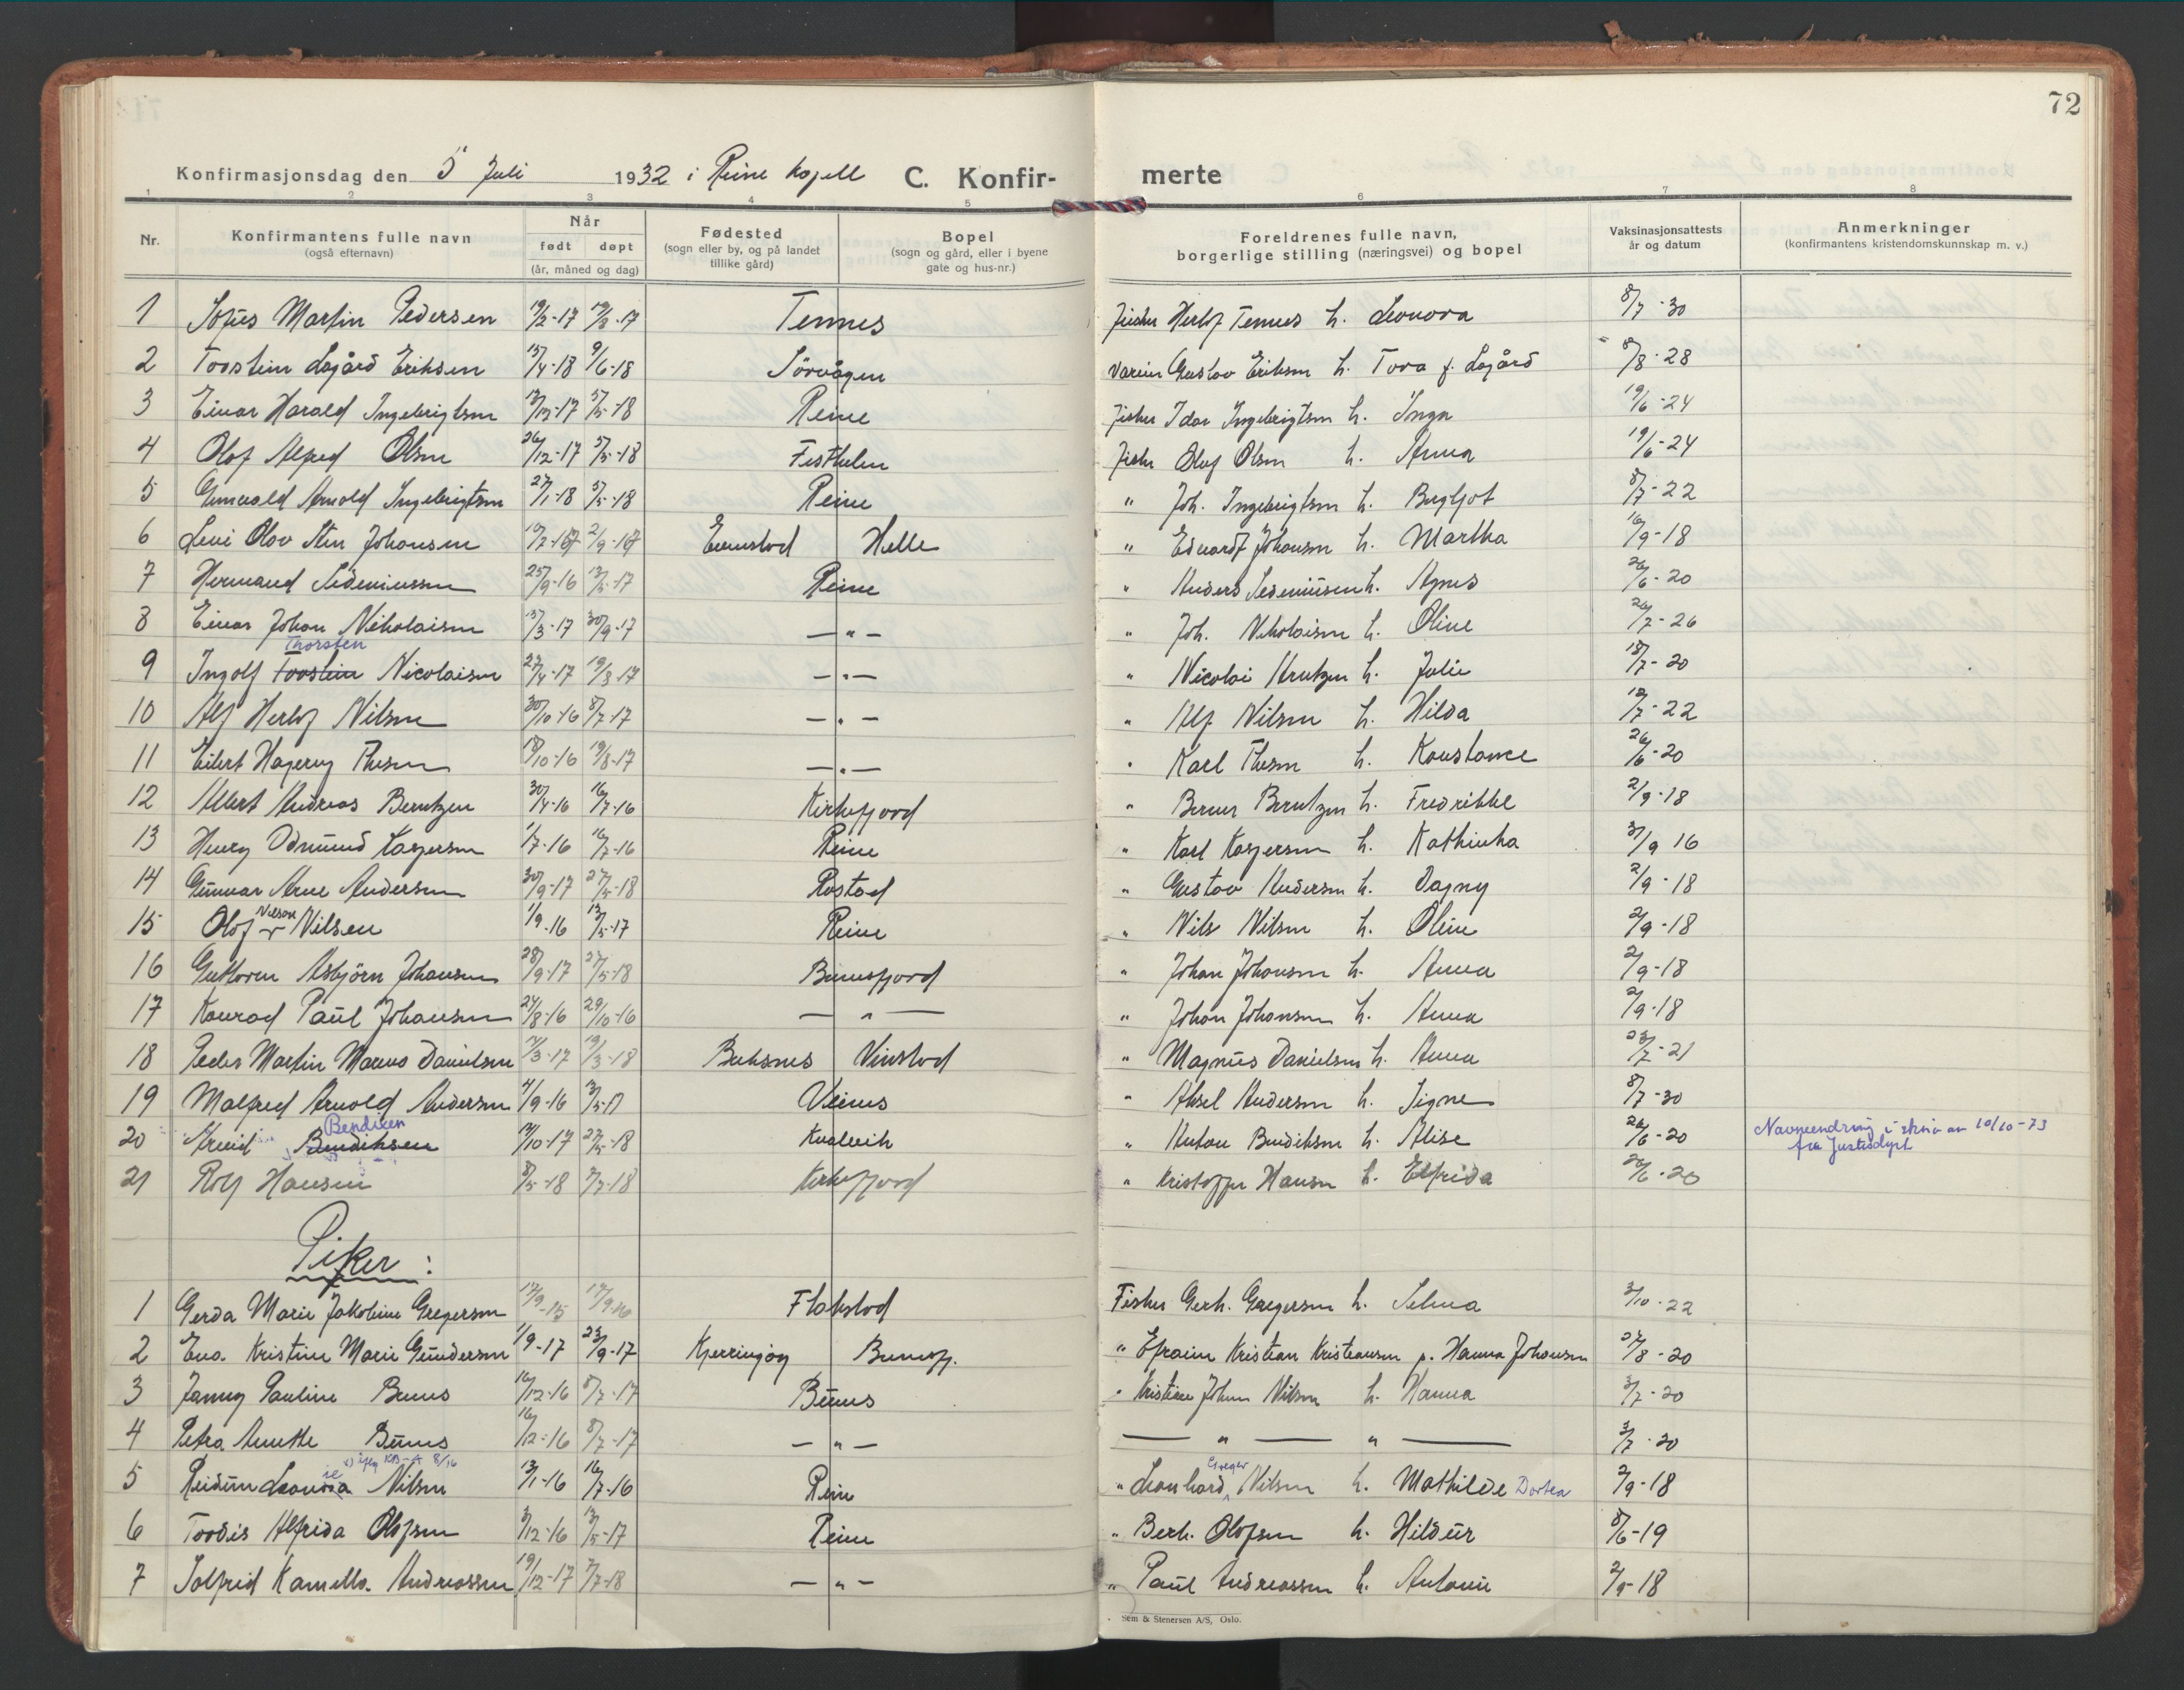 72
Konfirmasjonsdag den 5 Juli 1932 i Reine kapell C. Konfir- merte
1 2 3 4 5 6 7 8
Nr. Konfirmantens fulle navn (også efternavn) Når født døpt (år, måned og dag) Fødested (sogn eller by, og på landet tillike gård) Bopel (sogn og gård, eller i byene gate og hus-nr.) Foreldrenes fulle navn, borgerlige stilling (næringsvei) og bopel Vaksinasjonsattests år og datum Anmerkninger (konfirmantens kristendomskunnskap m. v.)
1 Sofus Martin Pedersen 19/2-17 19/8-17 Tennes Fisker Herlof Tennes h. Leonora 8/7-30
2 Torstein Logård Eriksen 15/4-18 9/6-18 Sörvågen Gustav Eriksen h. Tora f. Logård 8/8-28
3 Einar Harald Ingebrigtsen 13/12-17 5/5-18 Reine Fisker Idar Ingebrigtsen h. Inga 19/6-24
4 Olof Alfred Olsen 26/12-17 5/5-18 Festhelen Fisker Oluf Olsen h. Anna 19/6-24
5 Gunvald Arnold Ingebrigtsen 27/1-18 5/5-18 Reine " Joh. Ingebrigtsen h. Bergljot 8/7-22
6 Levi Olav Sten Johansen 19/7-17 2/9-17 Evenstad Helle " Edvard Johansen h. Martha 16/9-18
7 Hermand Sedeniussen 25/9-16 13/5-17 Reine " Anders Sedeniussen h. Agnes 26/6-20
8 Einar Johan Nikolaisen 15/3-17 30/9-17 — " — " Joh. Nikolaisen h. Oline 26/7-26
Thorsten
9 Ingolf Torstein Nicolaisen 27/4-17 19/8-17 — " — " Nicolai Arntzen h. Julie 18/7-20
10 Alf Herlof Nilsen 30/10-16 8/7-17 — " — " Alf Nilsen h. Hilda 12/7-22
11 Eilert Hagerup Thesen 18/10-16 19/8-17 — " — " Karl Thesen h. Konstance 26/6-20
12 Albert Andreas Berntzen 30/4-16 16/7-16 Kirkefjord " Berner Berntzen h. Fredrikke 2/9-18
13 Henry Odmund Kaspersen 1/7-16 16/7-16 Reine " Karl Kaspersen h. Kathinka 3/9 16
14 Gunnar Arne Andersen 30/9-17 27/5-18 Rostad " Gustav Andersen h. Dagny 2/9-18
15 Olof Nelson Nilsen 1/9-16 13/5-17 Reine " Nils Nilsen h. Oline 2/9-18
16 Guttorm Asbjörn Johansen 28/9-17 27/5-18 Bunesfjord " Johan Johansen h. Anna 2/9-18
17 Konrad Paul Johansen 24/8-16 29/10-16 — " — " Johan Johansen h. Anna 2/9-18
18 Peder Martin Marius Danielsen /3-17 19/3-18 Buksnes Vinstad " Magnus Danielsen h. Anna 23/7-21
19 Malfred Arnold Andersen 4/9-16 13/5-17 Veines " Aksel Andersen h. Signe 8/7-30
Bendixen
20 Arvid Bendiksen 14/10-17 27/5-18 Kvalvik " Anton Bendiksen h. Alise 26/6-20 Navneendring i skriv av 10/10-73 fra Justisdept
21 Rolf Hansen 8/5-18 7/7-18 Kirkefjord " Kristoffer Hansen h. Elfrida 26/6-20
Piker:
1 Gerda Marie Jakobine Gregersen 17/9-15 17/9-16 Flakstad Fisker Gerh. Gregersen h. Selma 3/10-22
2 Eva Kristine Marie Gundersen 1/9-17 23/9-17 Kjerringøy Bunesfj. " Efraim Kristian Kristiansen p. Hanna Johansen 27/8-20
3 Fanny Pauline Bunes 16/12-16 8/7-17 Bunes " Kristian Johan Nilsen h. Hanna 3/7-20
4 Petra Anette Bunes 16/12-16 8/7-17 — " — — " — " — 3/7-20
v) iflg KB-A 8/16
5 Reidun Leonora ie Nilsen 13/1-16 16/7-16 Reine " Leonhard Greger Nilsen h. Mathilde Dortea 2/9-18
6 Tordis Alfrida Olofsen 3/12-16 13/5-17 Reine " Berh. Olofsen h. Hildur 8/6-19
7 Solfrid Kamilla Andreassen 19/12-17 7/7-18 — " — " Paul Andreassen h. Antonie 2/9-18
Sem & Stenersen A/S, Oslo.